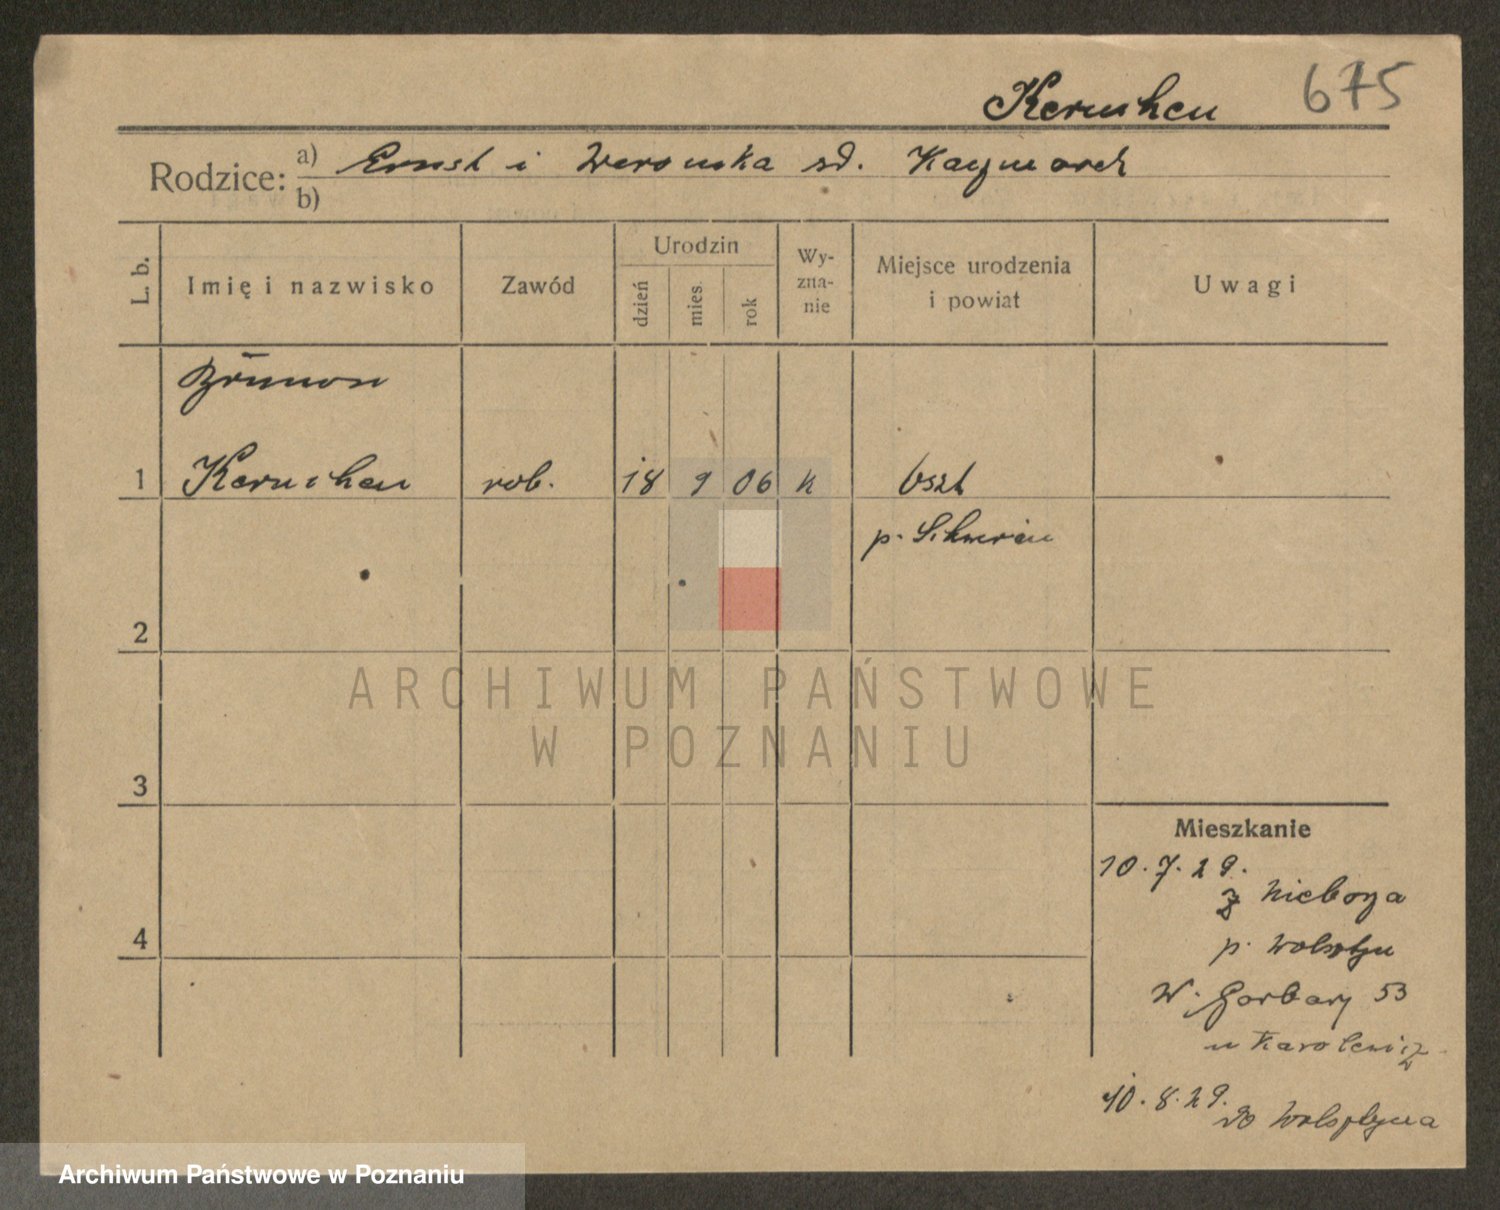 675
Rodzice: a) Ernst i Weronika
b)
L. b.
Imię i nazwisko
Zawód
Urodzin
dzień
mies.
rok
Wy-
zna-
nie
Miejsce urodzenia
i powiat
Uwagi
Brunon
1 rob. 18 9 06 k
p. Schwerin
2
ARCHIWUM PAŃSTWOWE
W POZNANIU
3
Mieszkanie
10.7.29.
z Nieborza
4
p. Wolsztyn
W. Garbary 53
u Karolewicz
10.8.29.
do Wolsztyna
Archiwum Państwowe w Poznaniu